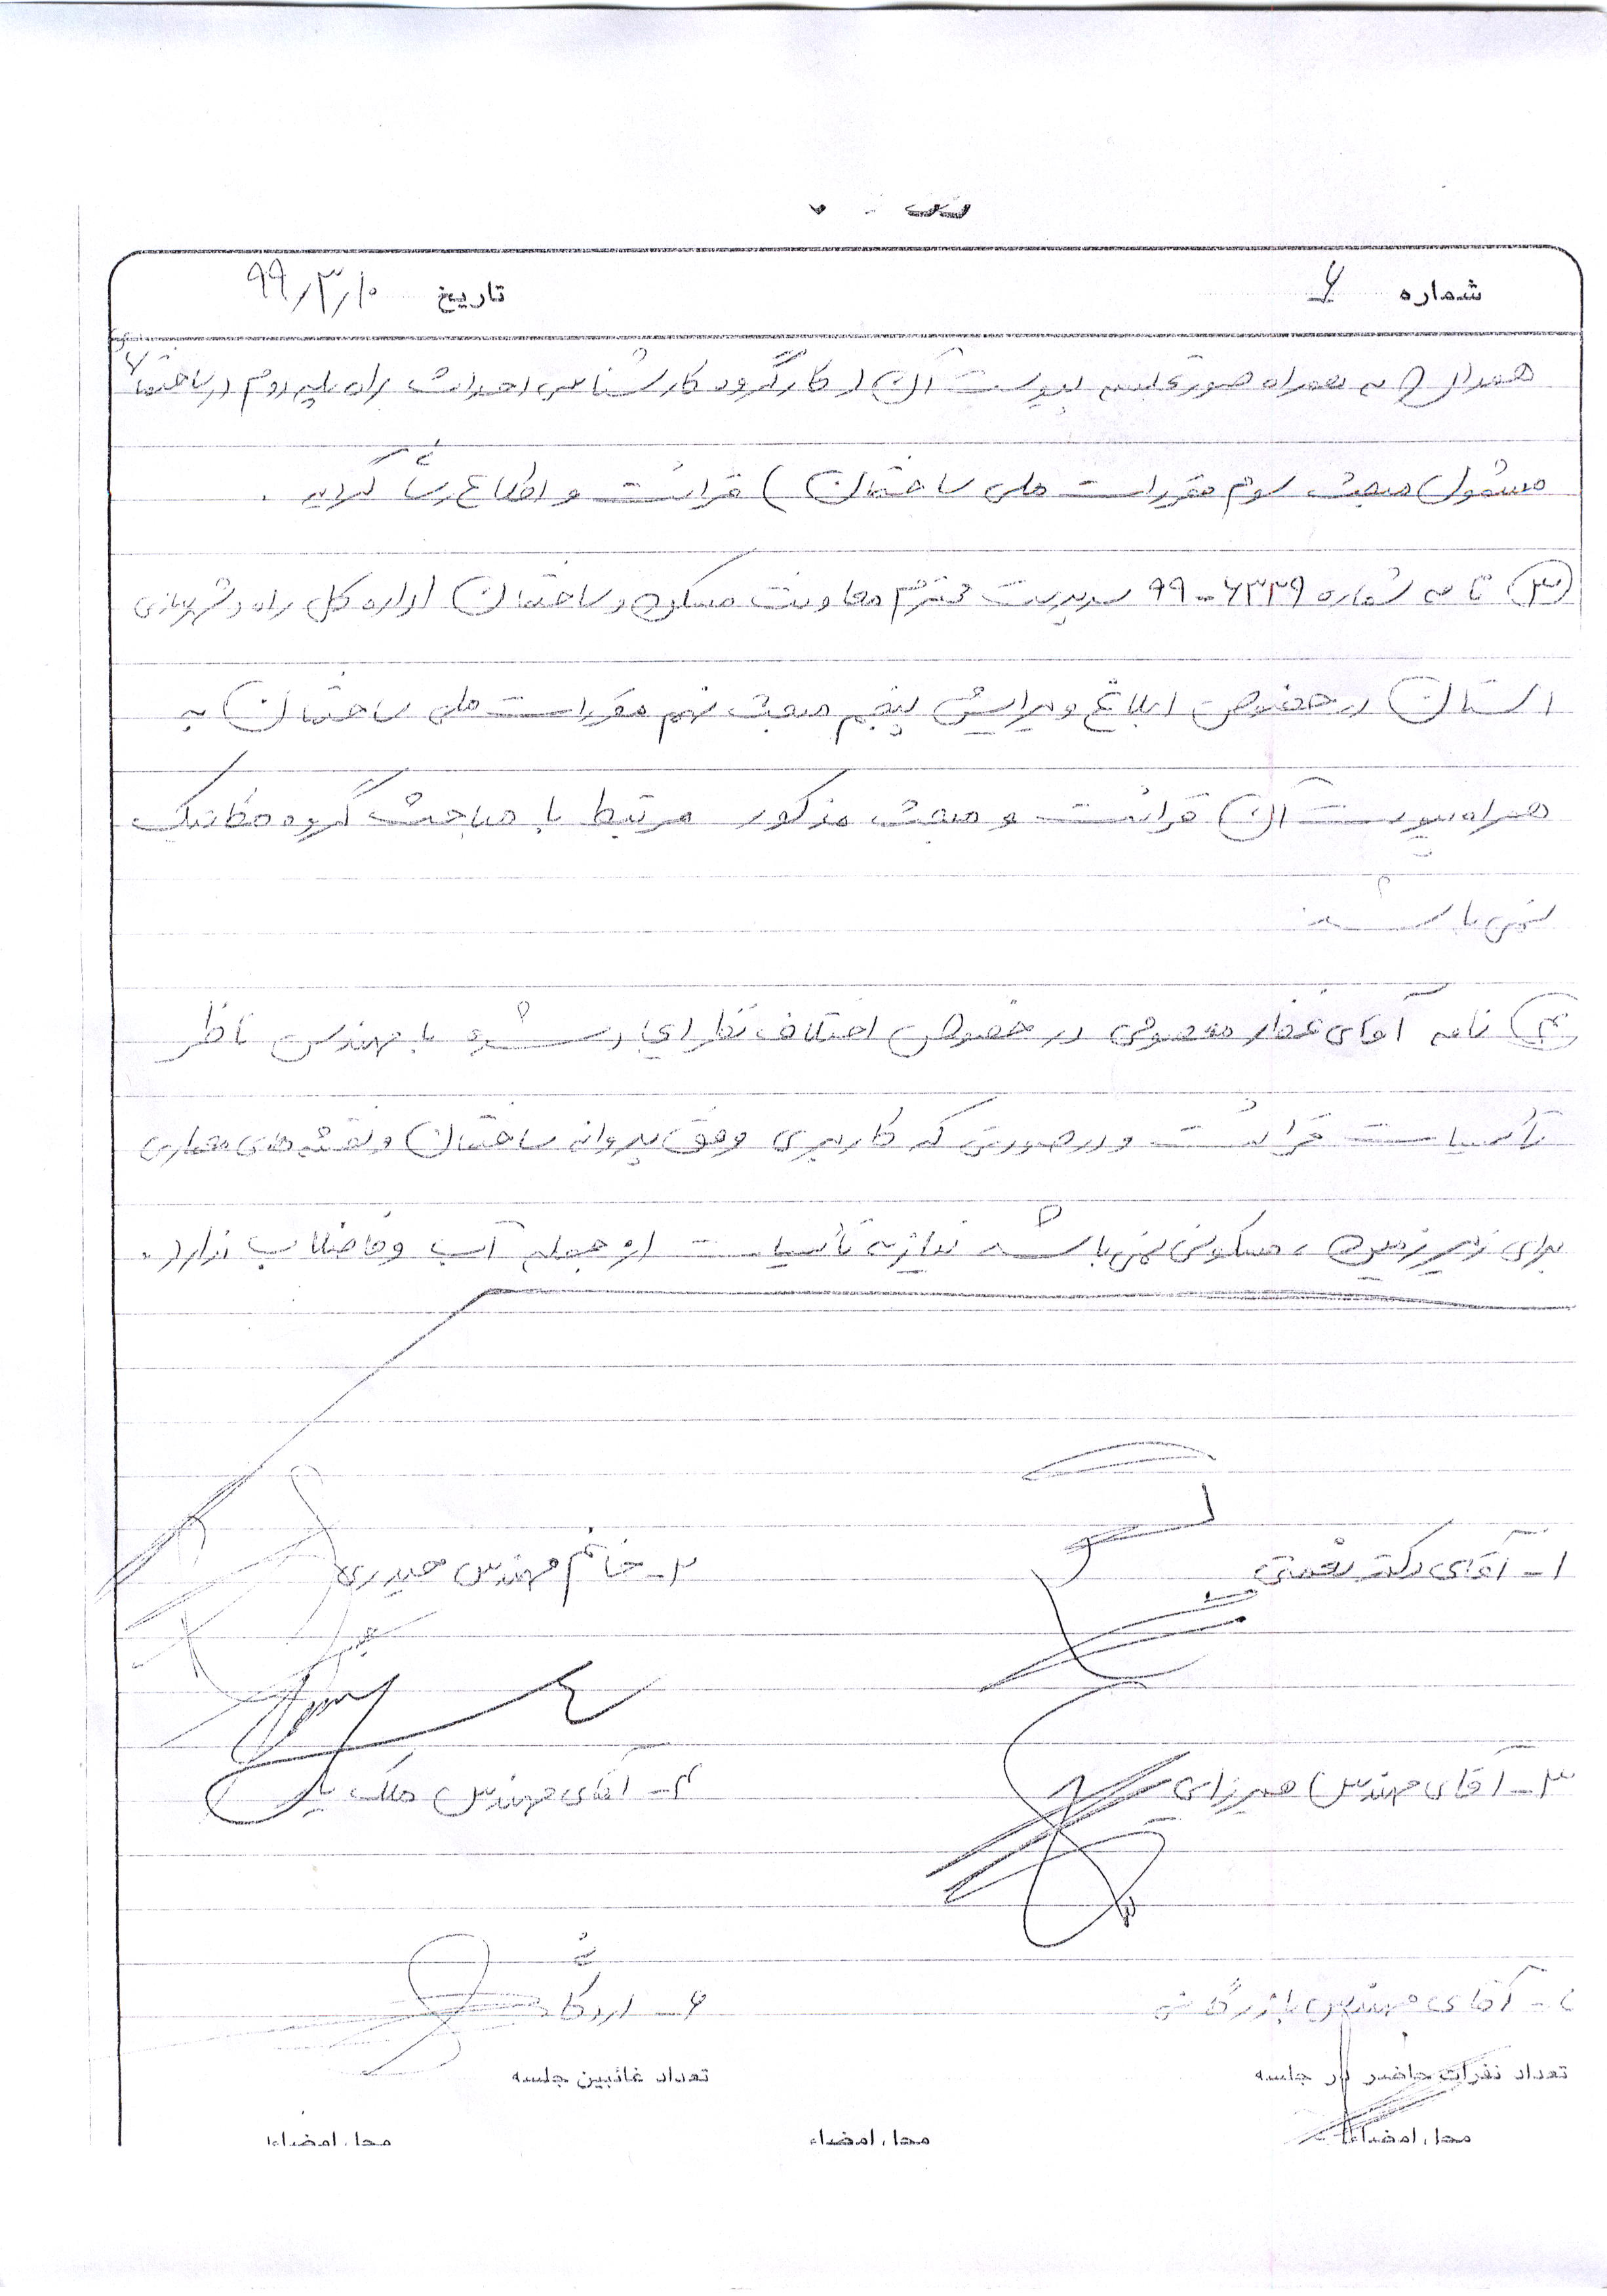 شماره ۶ تاریخ ۹۹/۳/۱۰
همدان به همراه صورتجلسه پیوست آن (کارگروه کارشناسی احداث راه پله دوم در ساختمانهای
مشمول مبحث سوم مقررات ملی ساختمان) قرائت و اطلاع رسانی گردید.
۳) نامه شماره ۶۳۳۹-۹۹ سرپرست محترم معاونت مسکن و ساختمان اداره کل راه و شهرسازی
استان در خصوص ابلاغ ویرایش پنجم مبحث نهم مقررات ملی ساختمان به
همراه پیوست آن قرائت و مبحث مذکور مرتبط با مباحث گروه مکانیک
نمی باشد.
۴) نامه آقای غفار معصومی در خصوص اختلاف نظر ایجاد شده با مهندس ناظر
تأسیسات قرائت و در صورتی که کاربری وفق پروانه ساختمان و نقشه های معماری
برای زیرزمین، مسکونی نمی باشد نیاز به تأسیسات از جمله آب و فاضلاب ندارد.
۱- آقای دکتر نعمتی ۲- خانم مهندس حیدری
۳- آقای مهندس میرزایی ۴- آقای مهندس ملک یار
۵- آقای مهندس بازرگانی ۶-
تعداد نفرات حاضر در جلسه تعداد غائبین جلسه
محل امضاء محل امضاء محل امضاء